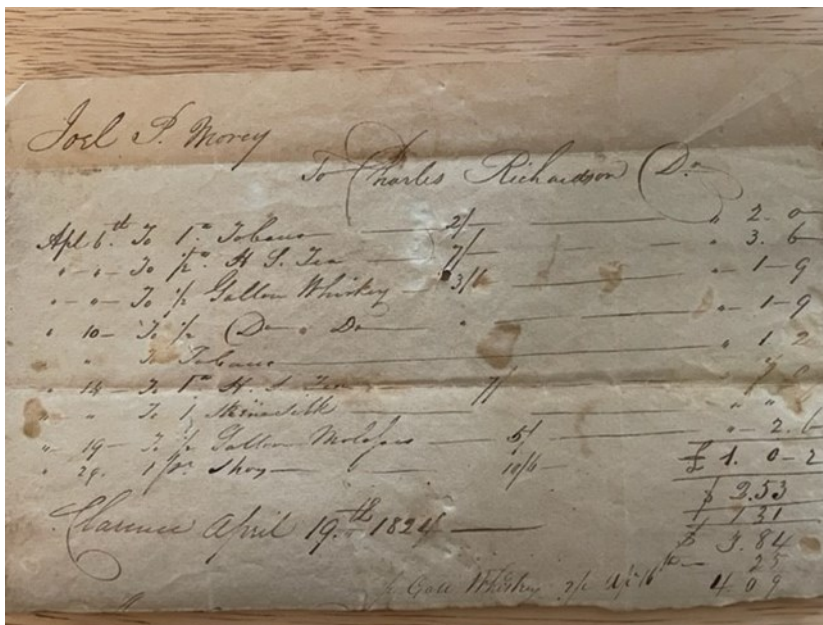 Joel P. Morey
To Charles Richardson Dr
Apl 6th To 1 lb Tobacco 2/ " 2. 0
" " To 1/2 lb H S. Tea 7/ " 3. 6
" " To 1/2 Gallon Whiskey 3/6 " 1-9
" 10 To 1/2 Do " Do " " 1-9
" " To Tobacco " 1 2
" 14 To 1 lb H. S. Tea 7/ 7
" " To 1 Skein Silk " "
" 19 To 1/2 Gallon Molasses 5/ " 2. 6
" 29. 1 pr. Shoes 10/6
£ 1. 0-2
$ 2.53
1 31
Clarence April 19th 1824
$ 3.84
25
1/2 Gall Whiskey 4.09